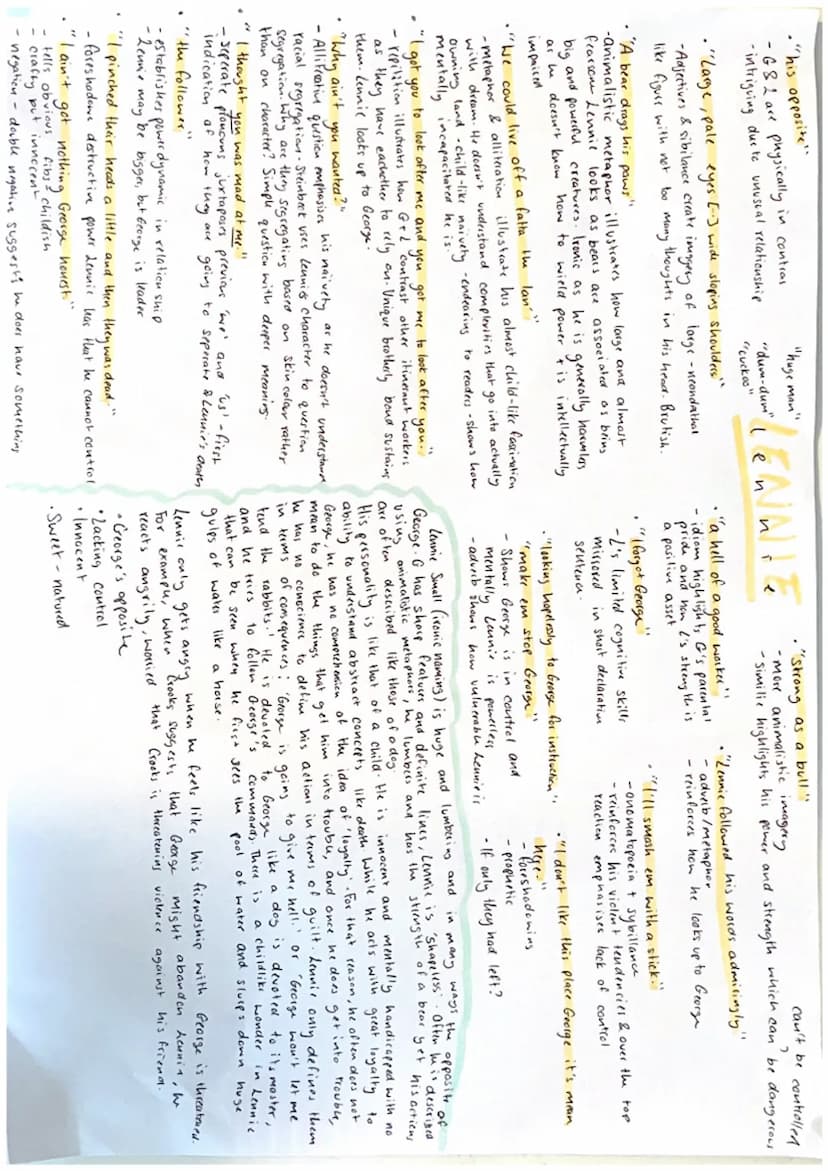 LENNIE
lennie
"huge man"
"dum-dum"
"cuckoo"
• "his opposite"
- G & L are physically in contrast
- intriguing due to unusual relationship
• "Large, pale eyes [...] wide sloping shoulders"
- Adjectives & sibilance create imagery of large - neondathal
like figure with not too many thoughts in his head. Brutish.
• "A bear drags his paws"
- animalistic metaphor illustrates how large and almost
fearsom Lennie looks as bears are associated as being
big and powerful creatures. Ironic as he is generally harmless
as he doesn't know how to wield power + is intellectually
impaired
• "We could live off a fatta the lan'"
- metaphor & alliteration illustrate his almost child-like fascination
with dream. He doesn't understand complexities that go into actually
owning land - child-like naivety - endearing to readers - shows how
mentally incapacitated he is.
• "I got you to look after me and you got me to look after you."
- repitition illustrates how G + L contrast other itinerant workers
as they have eachother to rely on. Unique brotherly bond sustains
them. Lennie looks up to George.
• "Why ain't you wanted?"
- Alliterative question emphasises his naivety as he doesn't understand
racial segregation. Steinbeck uses Lennie's character to question
segregation. Why are they segregating based on skin color rather
than on character? Simple question with deeper meaning.
• "I thought you was mad at me"
- seperate pronouns juxtaposes previous 'we' and 'us' - first
indication of how they are going to seperate & Lennie's death
• "the follower"
- establishes power dynamic in relationship
- Lennie may be bigger, but George is leader
• "I pinched their heads a little and then they was dead."
- Foreshadows destructive power Lennie has that he cannot control
• "I ain't got nothing George honest"
- tells obvious fibs? childish
- crafty but innocent
- negation - double negative suggests he does have something
• "Strong as a bull"
can't be controlled
- more animalistic imagery
- similie highlights his power and strength which can be dangerous
• "a hell of a good worker"
- idiom highlights G's parental
pride and how L's strength is
a positive asset
• "Lennie followed his words admiringly"
- adverb/metaphor
- reinforces how he looks up to George
• "I forgot George"
- L's limited cognitive skills
mirrored in short declarative
sentence.
• "I'll smash em with a stick."
- onomatopoeia + sybillance
- reinforces his violent tendencies & over the top
reaction emphasises lack of control
• "looking hopelessly to George for instruction"
"make em stop George"
- Shows George is in control and
mentally Lennie is powerless
- adverb shows how vulnerable Lennie is
• "I don't like this place George it's mean
here."
- Foreshadowing
- prophetic
• If only they had left?
Lennie Small (ironic naming) is huge and lumbering and in many ways the opposite of
George. G has sharp features and definite lines, Lennie is 'shapeless'. Often he is described
using animalistic metaphors, he lumbers and has the strength of a bear yet his actions
are often described like those of a dog.
His personality is like that of a child. He is innocent and mentally handicapped with no
ability to understand abstract concepts like death. While he acts with great loyalty to
George, he has no comprehension of the idea of 'loyalty'. For that reason, he often does not
mean to do the things that get him into trouble, and once he does get into trouble,
he has no conscience to define his actions in terms of guilt. Lennie only defines them
in terms of consequences: 'George is going to give me hell' or 'George won't let me
tend the rabbits.' He is devoted to George like a dog is devoted to its master,
and he tries to follow George's commands. There is a childlike wonder in Lennie
that can be seen when he first sees the pool of water and slurps down huge
gulps of water like a horse.
Lennie only gets angry when he feels like his friendship with George is threatened.
For example, when Crooks suggests that George might abandon Lennie, he
reacts angrily, worried that Crooks is threatening violence against his friend.
• George's opposite
• Lacking control
• Innocent
• Sweet-natured